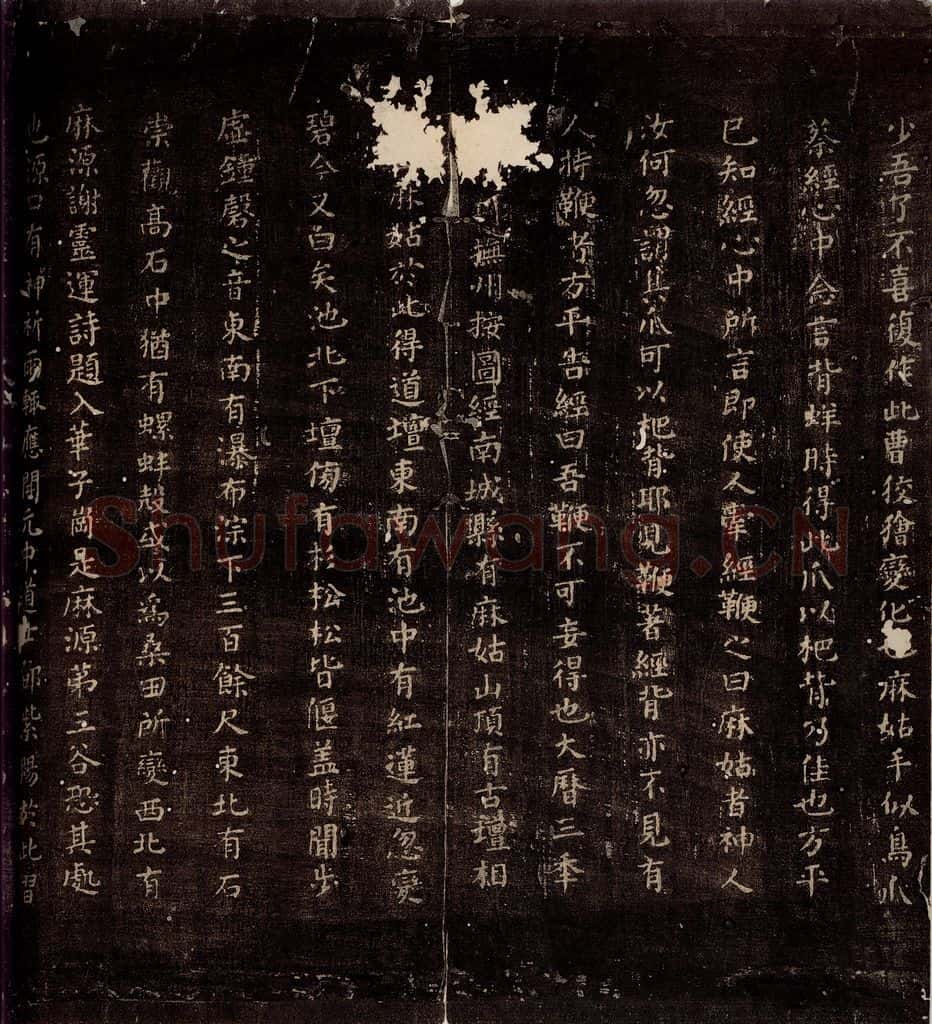 少吾了不喜復作此曹狡獪變化麻姑手似鳥爪
蔡經心中念言背蛘時得此爪以杷背乃佳也方平
已知經心中所言即使人牽經鞭之曰麻姑者神人
汝何忽謂其爪可以杷背耶見鞭著經背亦不見有
人持鞭者方平告經曰吾鞭不可妄得也大曆三年
撫州按圖經南城縣有麻姑山頂有古壇相
麻姑於此得道壇東南有池中有紅蓮近忽變
碧今又白矣池北下壇傍有杉松松皆偃盖時聞步
虛鐘磬之音東南有瀑布淙下三百餘尺東北有石
崇觀高石中猶有螺蚌殼或以為桑田所變西北有
麻源謝靈運詩題入華子崗是麻源第三谷恐其處
也源口有神祈雨輒應開元中道士鄧紫陽於此習
Shufawang.CN